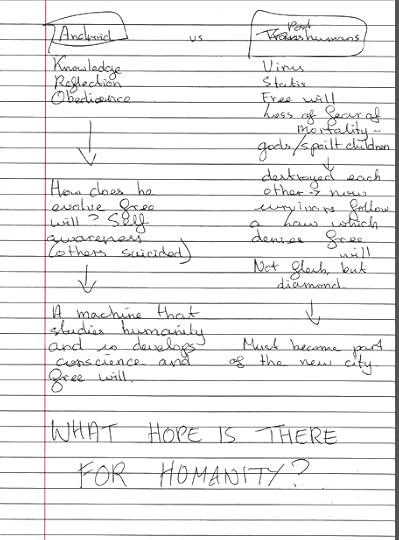 Android vs Post humans
Knowledge
Reflection
Obedience
How does he
evolve free
will? Self
awareness
(others suicided)
A machine that
studies humanity
and so develops
conscience and
free will.
Virus
Stasis
Free will
Loss of fear of
mortality -
gods/spoilt children
destroyed each
other → now
survivors follow
a law which
denies free
will
Not flesh, but
diamond.
Must become part
of the new city.
WHAT HOPE IS THERE
FOR HUMANITY?